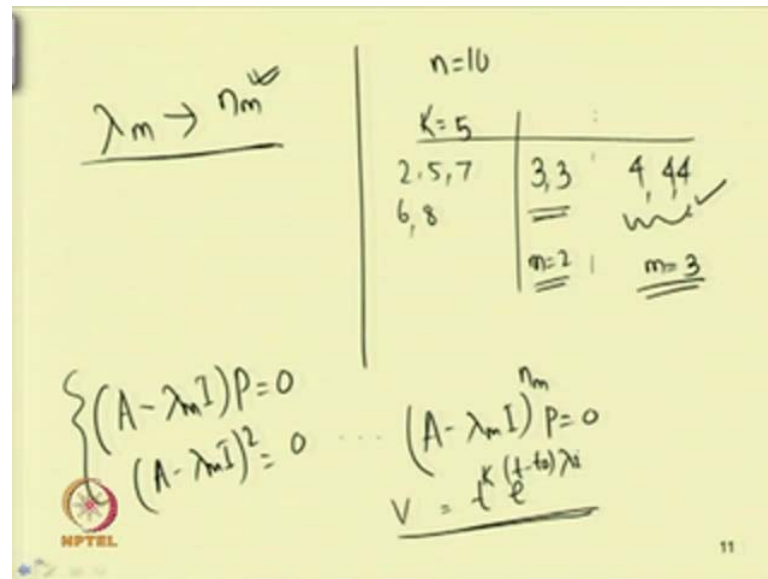 λm → nm
n=10
K=5
2,5,7
6,8
3,3
4,44
m=2
m=3
(A - λmI)P=0
(A - λmI)²=0 ... (A - λmI)^nm P=0
V = t^K e^(t-to)λi
NPTEL
11